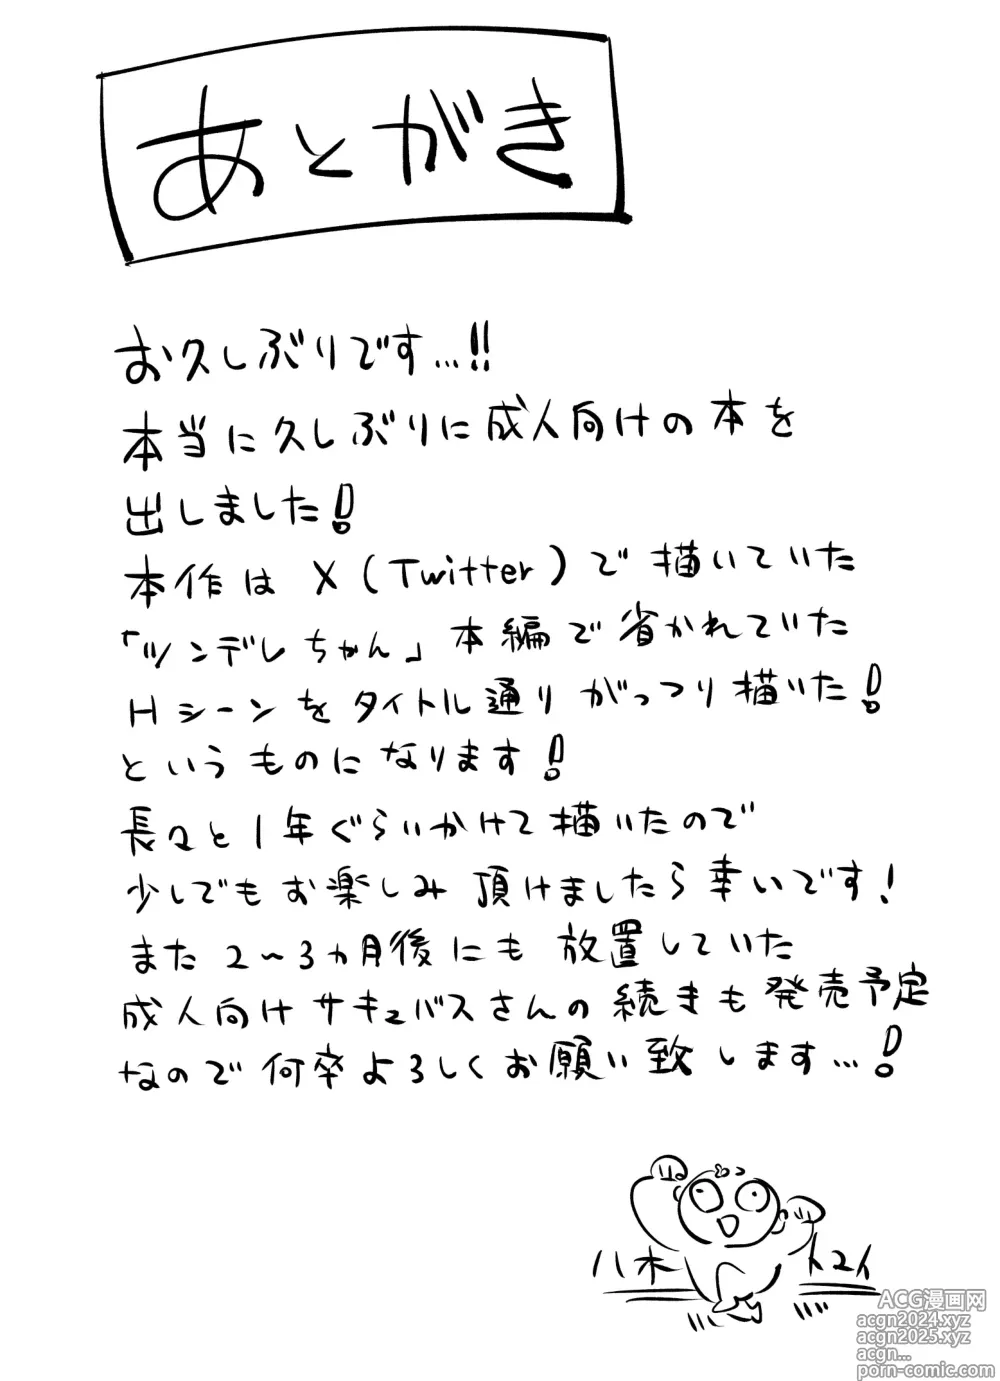 あとがき
お久しぶりです…!!
本当に久しぶりに成人向けの本を
出しました!
本作は X(Twitter)で描いていた
「ツンデレちゃん」本編で省かれていた
Hシーンをタイトル通りがっつり描いた!
というものになります!
長々と1年ぐらいかけて描いたので
少しでもお楽しみ頂けましたら幸いです!
また2~3ヵ月後にも放置していた
成人向けサキュバスさんの続きも発売予定
なので何卒よろしくお願い致します…!
八木 トマト
ACG漫画网
acgn2024.xyz
acgn2025.xyz
acgn...
porn-comic.com